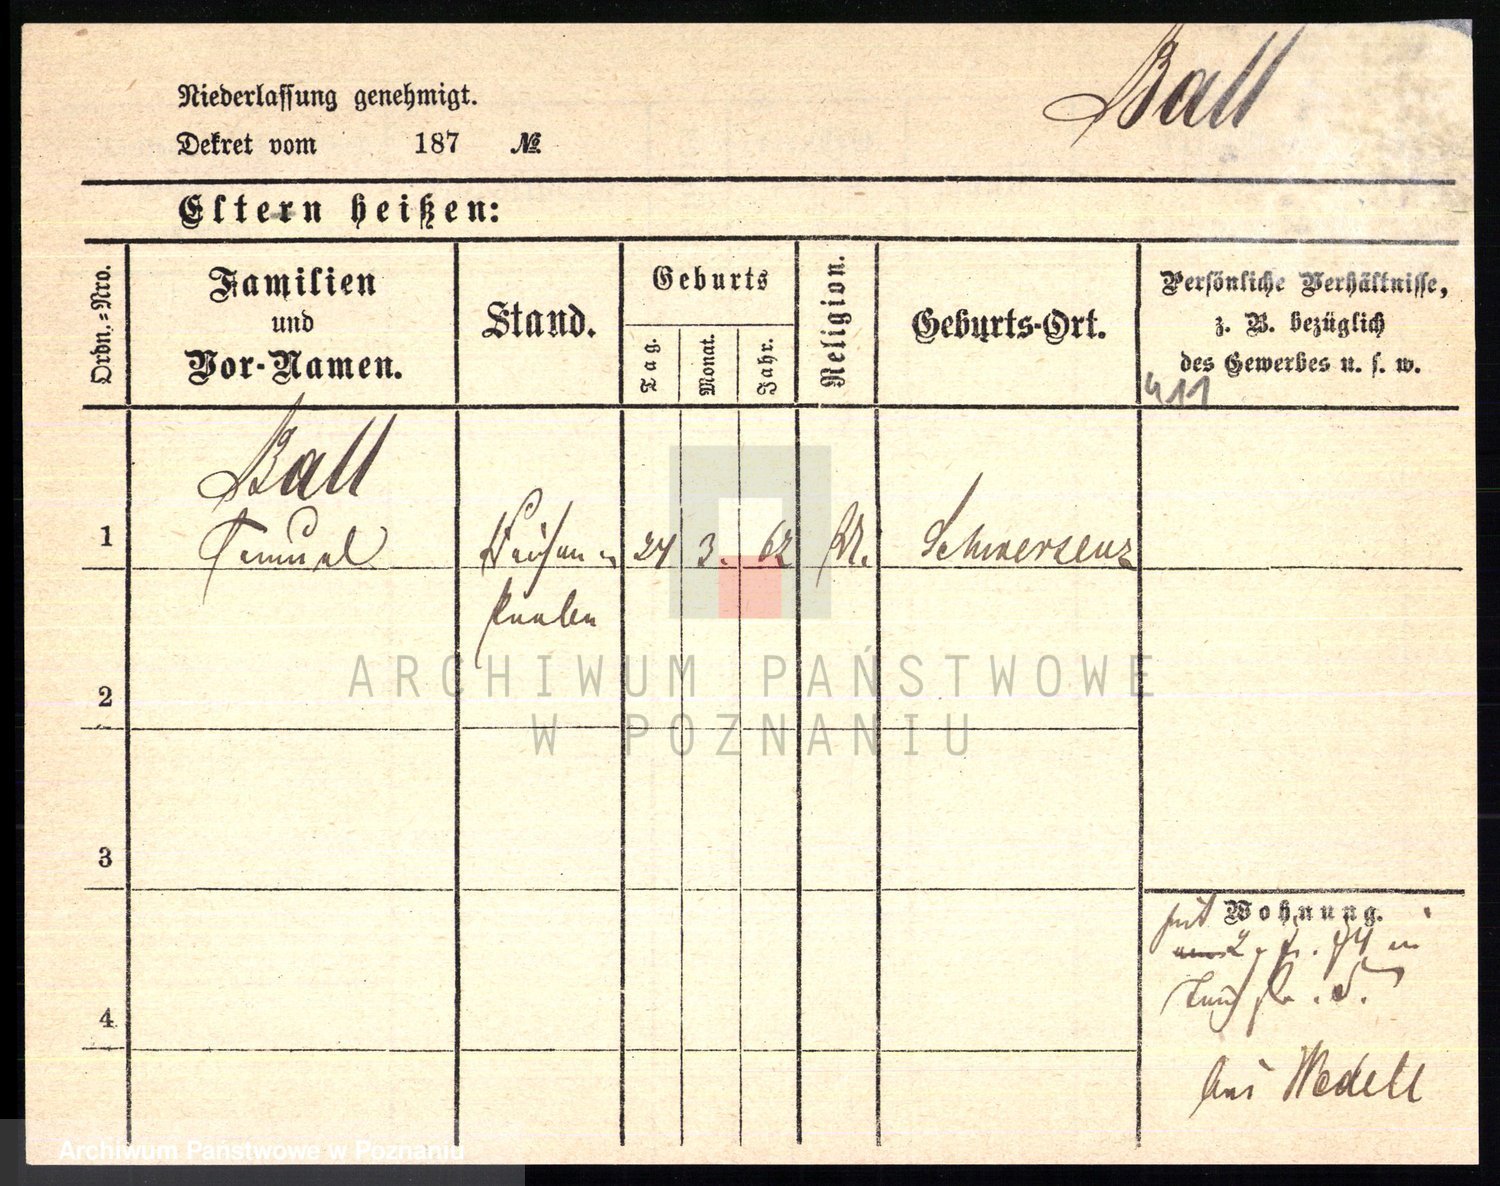 Ball
Niederlassung genehmigt.
Dekret vom 187 №
Eltern heißen:
Ordn.=Nro.
Familien
und
Vor-Namen.
Stand.
Geburts
Tag.
Monat.
Jahr.
Religion.
Geburts-Ort.
Persönliche Verhältnisse,
z. B. bezüglich
des Gewerbes u. s. w.
411
Ball
1 Samuel Waisen= 24 3. 62 M. Schwersenz
knabe
ARCHIWUM PAŃSTWOWE
2
W POZNANIU
3
seit Wohnung.
74 in
4
bei Wedell
Archiwum Państwowe w Poznaniu